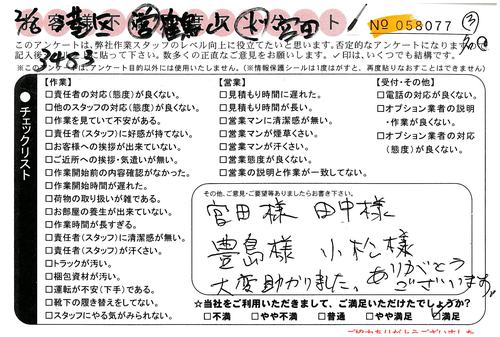 No 058077
このアンケートは、弊社作業スタッフのレベル向上に役立てたいと思います。否定的なアンケートになりますが、
記入後 に貼って下さい。数多くの正直なご意見をお願いします。✓印は、いくつでも結構です。
※このアンケートは、アンケート目的以外には使用いたしません。(※情報保護シールは1度がすと、再度貼りなおすことはできません)
チェックリスト
【作業】
□責任者の対応(態度)が良くない。
□他のスタッフの対応(態度)が良くない。
□作業を見ていて不安がある。
□責任者(スタッフ)に好感が持てない。
□お客様への挨拶が出来ていない。
□ご近所への挨拶・気遣いが無い。
□作業開始前の内容確認がなかった。
□作業開始時間が遅れた。
□荷物の取り扱いが雑である。
□お部屋の養生が出来ていない。
□作業時間が長すぎる。
□責任者(スタッフ)に清潔感が無い。
□責任者(スタッフ)が汗くさい。
□トラックが汚い。
□梱包資材が汚い。
□運転が不安(下手)である。
□靴下の履き替えをしてない。
□スタッフにやる気がみられない。
【営業】
□見積もり時間に遅れた。
□見積もり時間が長い。
□営業マンに清潔感が無い。
□営業マンが煙草くさい。
□営業マンが汗くさい。
□営業態度が良くない。
□営業の説明と作業が一致してない。
【受付・その他】
□電話の対応が良くない。
□オプション業者の説明
・作業が良くない。
□オプション業者の対応
(態度)が良くない。
その他、ご意見・ご要望等ありましたらお書き下さい。
宮田様 田中様
豊島様 小松様
大変助かりました。ありがとう
ございます。
☆当社をご利用いただきまして、ご満足いただけたでしょうか?
□不満 □やや不満 □普通 □やや満足 □満足
ご協力ありがとうございました